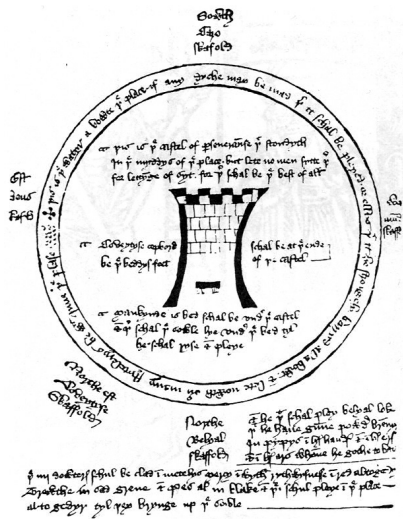 Sowth
Caro
skafold
þis is þe watyr abowte þe place if any dyche may be mad þer it schal be pleyed or ellys þat it be strongely barryd al abowt & lete nowth ouyr many stytelerys be wyth inne þe plase
þis is þe castel of perseueraunse þat stondyth
In þe myddys of þe place but lete no men sytte þer
for lettynge of syt for þer schal be þe best of all
Est
deus
skafold
Coveytyse copbord
be þe beddys feet
schal be at þe ende
of þe castel
Mankyndeis bed schal be vndyr þe castel
& þer schal þe sowle lye vndyr þe bed tyl
he schal ryse & pleye
Northe est
Coveytyse
skaffold
Northe
Belyal
skaffold
& he þat schal pley belyal loke
þat he haue gunne powdyr brenn
In pypys in hys handys & in hys erys
& in hys ars whanne he gothe to bat
þe iiij dowteris schul be clad in mentelys mercy in wyth rythwysnesse in red al togedyr
Trewthe in sad grene & pes al in blake & þei schul pleye in þe place
al to gedyr tyl þey brynge up þe sowle